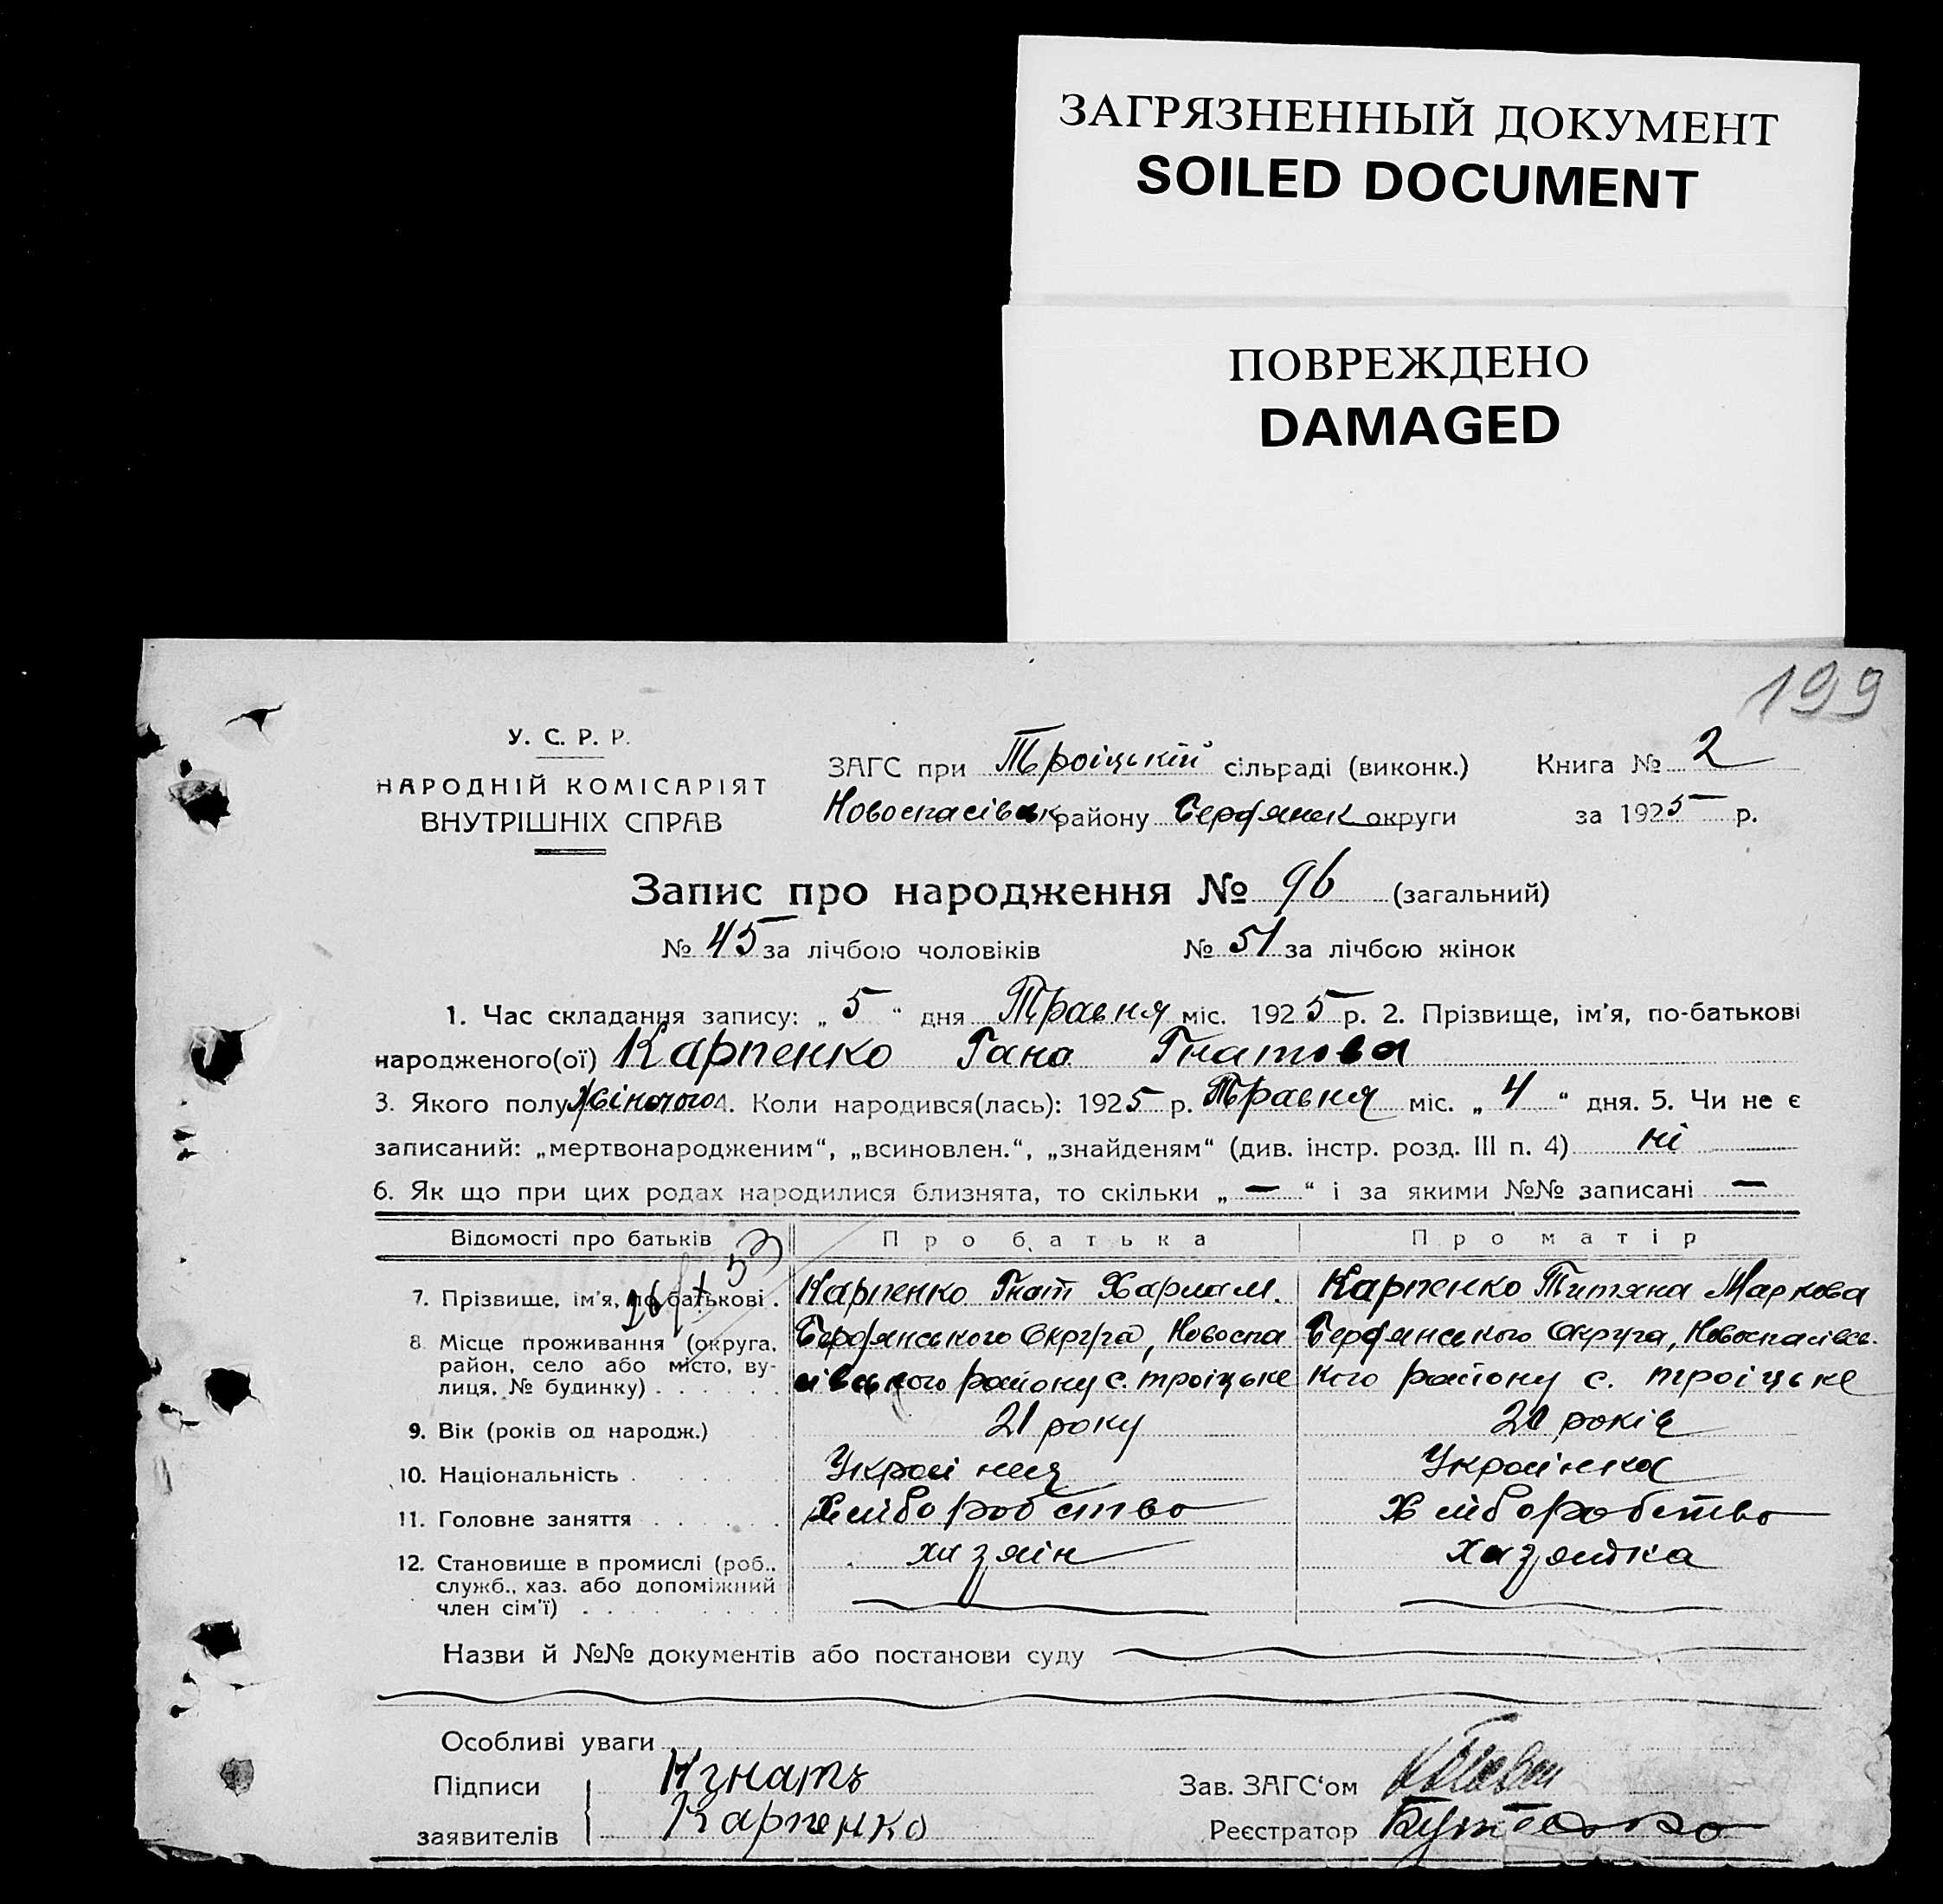 ЗАГРЯЗНЕННЫЙ ДОКУМЕНТ
SOILED DOCUMENT
ПОВРЕЖДЕНО
DAMAGED
199
У. С. Р. Р.
НАРОДНІЙ КОМІСАРІЯТ
ВНУТРІШНІХ СПРАВ
ЗАГС при Троіцькій сільраді (виконк.) Книга № 2
Новоспасівськ району Бердянськ округи за 1925 р.
Запис про народження № 96 (загальний)
№ 45 за лічбою чоловіків № 51 за лічбою жінок
1. Час складання запису: „ 5 “ дня Травня міс. 1925 р. 2. Прізвище, ім'я, по-батькові
народженого(ої) Карпенко Гана Гнатова
3. Якого полу жіночого 4. Коли народився(лась): 1925 р. Травня міс. „ 4 “ дня. 5. Чи не є
записаний: „мертвонародженим“, „всиновлен.“, „знайденям“ (див. інстр. розд. III п. 4) ні
6. Як що при цих родах народилися близнята, то скільки „ — “ і за якими №№ записані —
Відомості про батьків Про батька Про матір
7. Прізвище, ім'я, по батькові. Карпенко Гнат Харлам. Карпенко Титяна Маркова
8. Місце проживання (округа, Бердянського Округа, Новоспа Бердянського Округа, Новоспасівсь-
район, село або місто, ву-
лиця, № будинку) сівського району с. троіцьке кого району с. троіцьке
9. Вік (років од народж.) 21 року 20 років
10. Національність Украінец Украінка
11. Головне заняття Хліборобство Хліборобство
12. Становище в промислі (роб., хазяін хазяйка
служб., хаз. або допоміжний
член сім'ї)
Назви й №№ документів або постанови суду
Особливі уваги
Підписи Игнатъ Зав. ЗАГС‘ом
заявителів Карпенко Реєстратор